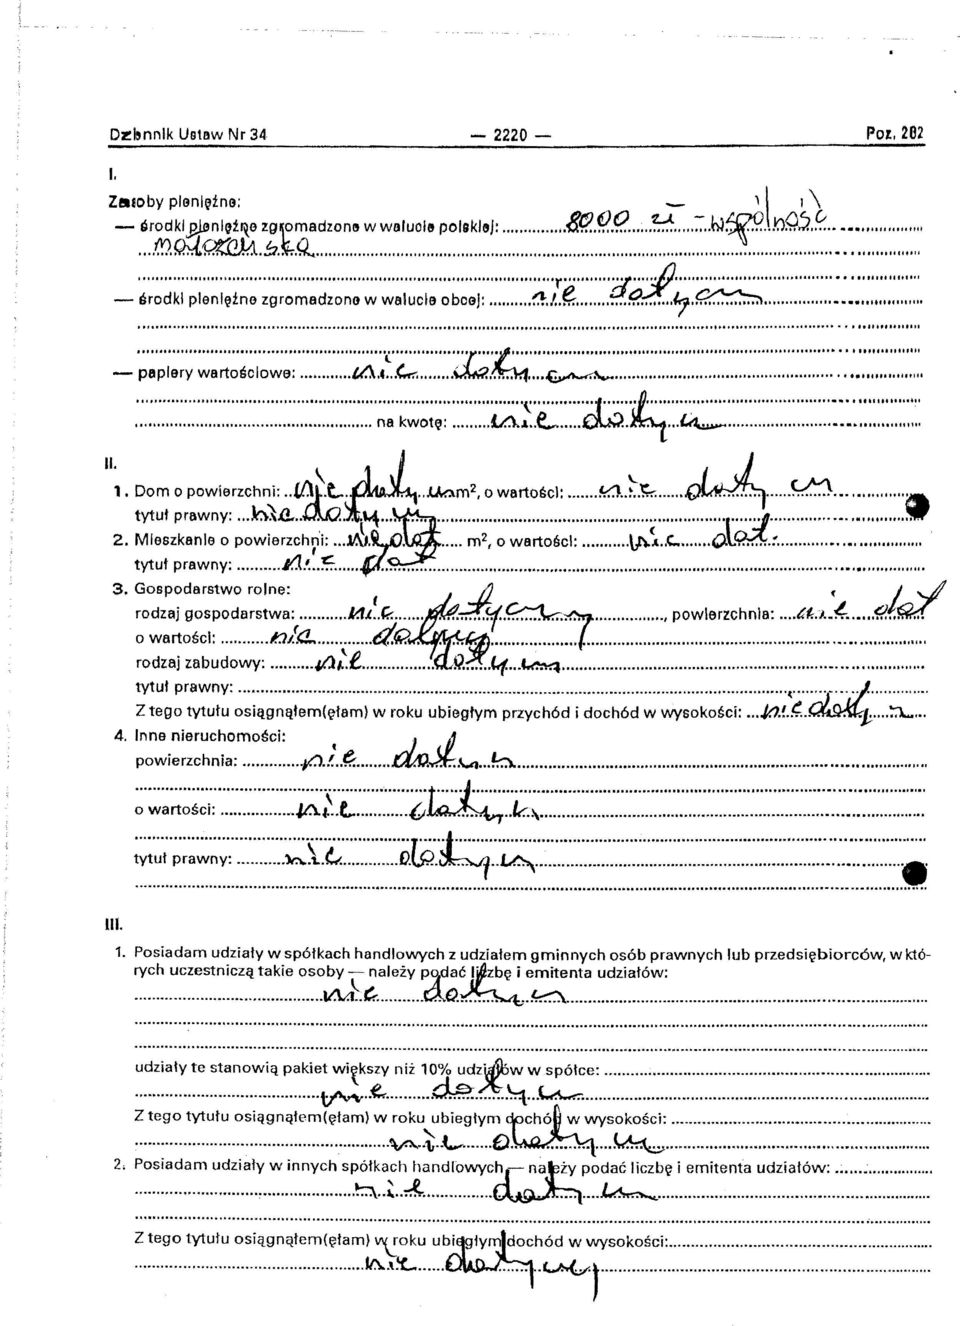 Dziennik Ustaw Nr 34 — 2220 — Poz. 282
I.
Zasoby pieniężne:
— środki pieniężne zgromadzone w walucie polskiej: 8000 zł - wspólność
małżeńska
— środki pieniężne zgromadzone w walucie obcej: nie dotyczy
— papiery wartościowe: nie dotyczy
na kwotę: nie dotyczy
II.
1. Dom o powierzchni: nie dotyczy m², o wartości: nie dotyczy
tytuł prawny: nie dotyczy
2. Mieszkanie o powierzchni: nie dot. m², o wartości: nie dot.
tytuł prawny: nie dot
3. Gospodarstwo rolne:
rodzaj gospodarstwa: nie dotyczy, powierzchnia: nie dot
o wartości: nie dotyczy
rodzaj zabudowy: nie dotyczy
tytuł prawny:
Z tego tytułu osiągnąłem(ęłam) w roku ubiegłym przychód i dochód w wysokości: nie doty
4. Inne nieruchomości:
powierzchnia: nie dotyczy
o wartości: nie dotyczy
tytuł prawny: nie dotyczy
III.
1. Posiadam udziały w spółkach handlowych z udziałem gminnych osób prawnych lub przedsiębiorców, w któ-
rych uczestniczą takie osoby — należy podać liczbę i emitenta udziałów:
nie dotyczy
udziały te stanowią pakiet większy niż 10% udziałów w spółce:
nie dotyczy
Z tego tytułu osiągnąłem(ęłam) w roku ubiegłym dochód w wysokości:
nie dotyczy
2. Posiadam udziały w innych spółkach handlowych — należy podać liczbę i emitenta udziałów:
nie dotyczy
Z tego tytułu osiągnąłem(ęłam) w roku ubiegłym dochód w wysokości:
nie dotyczy